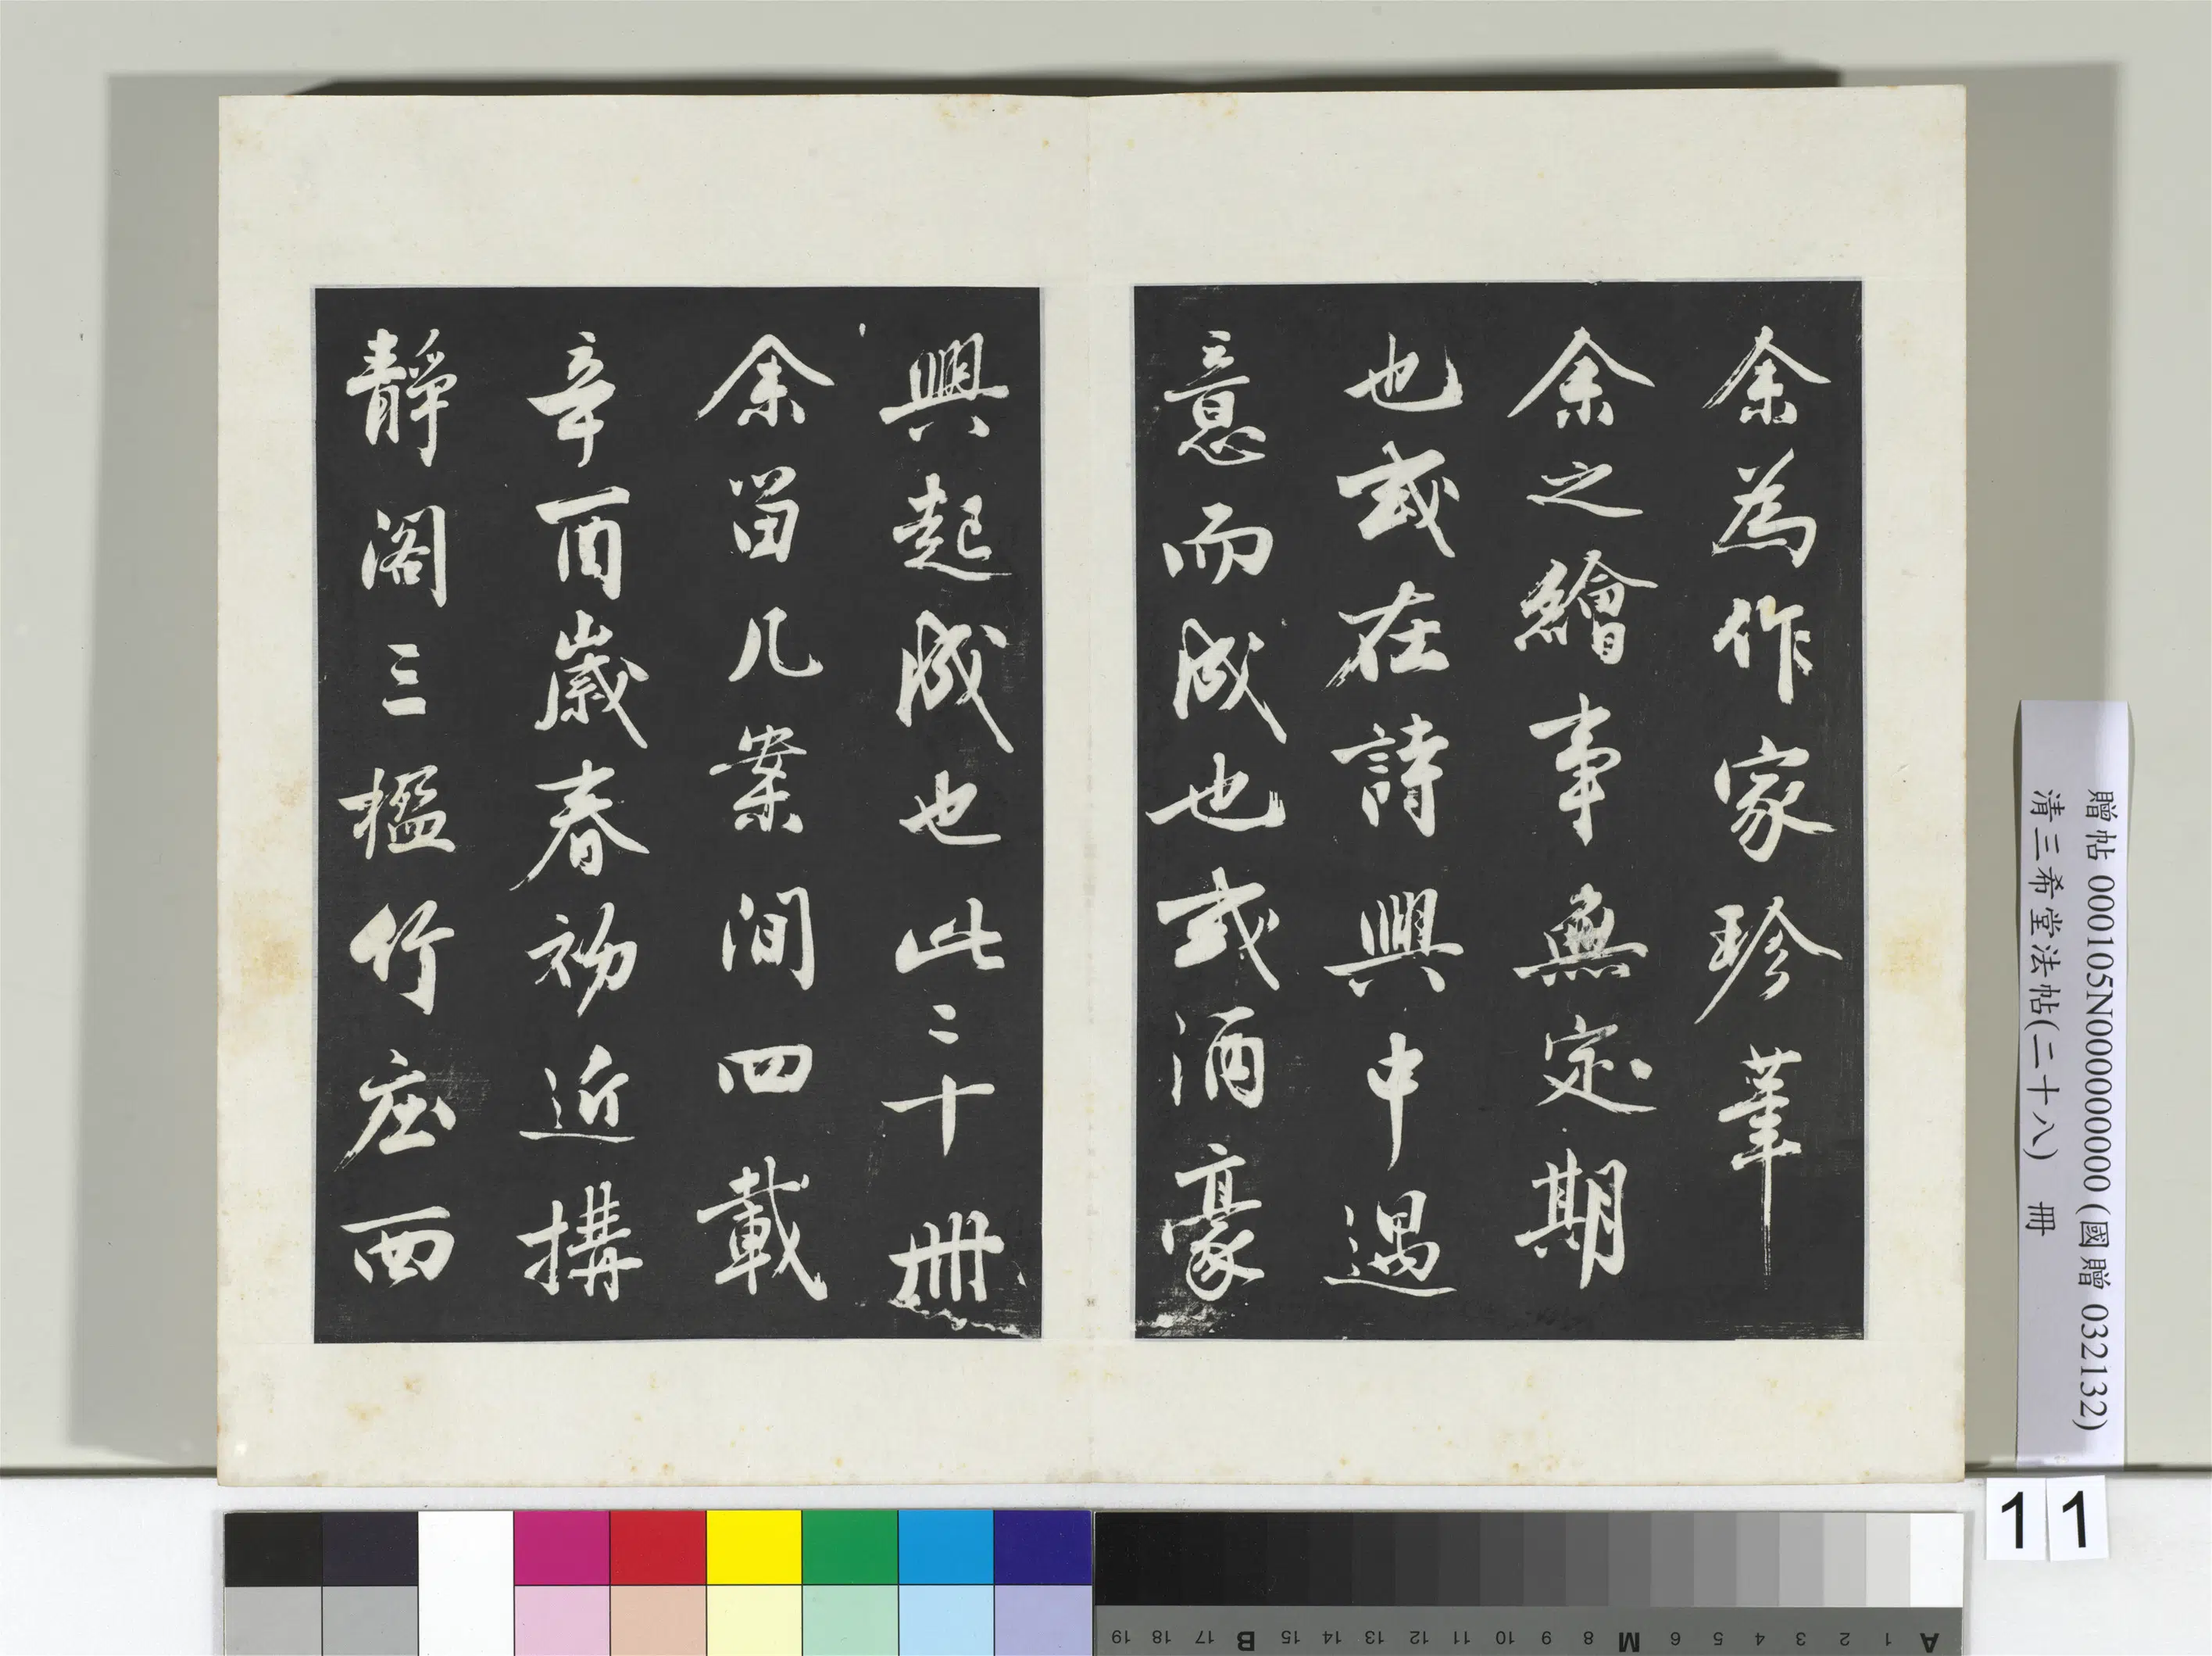 余為作家珍筆
余之繪事無定期
也或在詩興中遇
意而成也或酒豪
興起成也此三十冊
余留几案間四載
辛酉歲春初近搆
靜閣三楹竹庄西
贈帖 000105N000000000 (國贈 032132)
清三希堂法帖(二十八) 冊
11
A 1 2 3 4 5 6 M 8 9 10 11 12 13 14 15 B 17 18 19